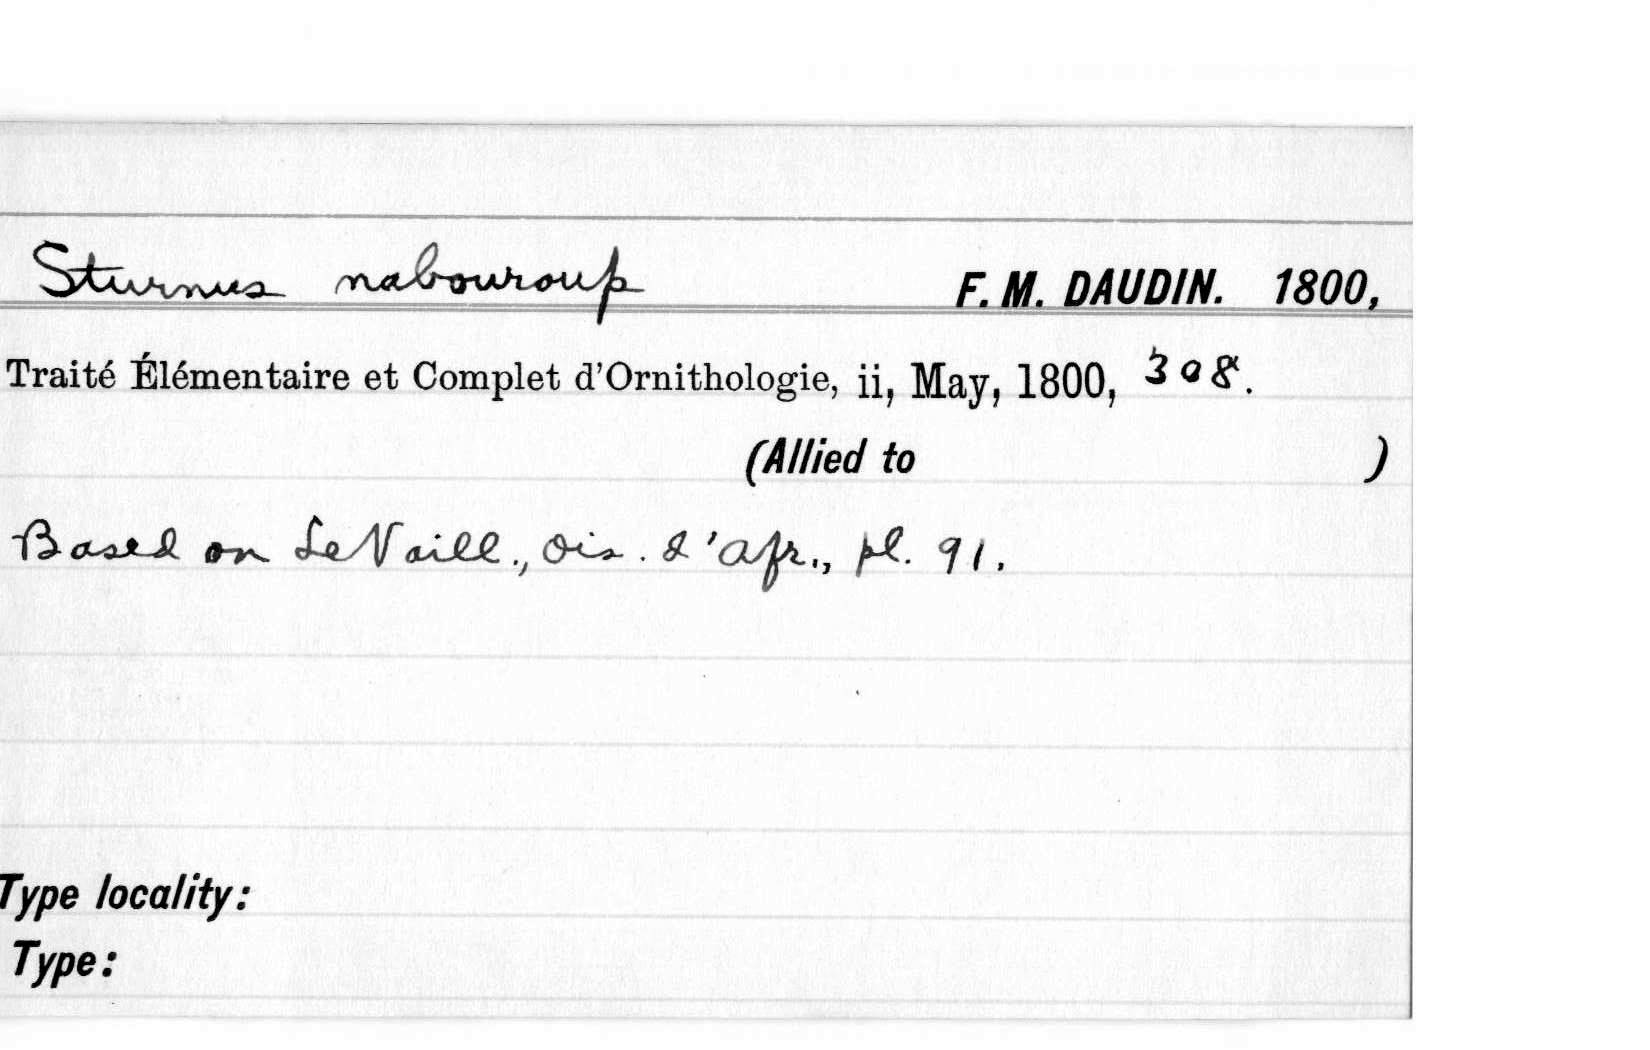 Sturnus nabouroup F. M. DAUDIN. 1800,
Traité Élémentaire et Complet d'Ornithologie, ii, May, 1800, 308.
(Allied to )
Based on LeVaill., Ois. d'Afr., pl. 91.
Type locality:
Type: